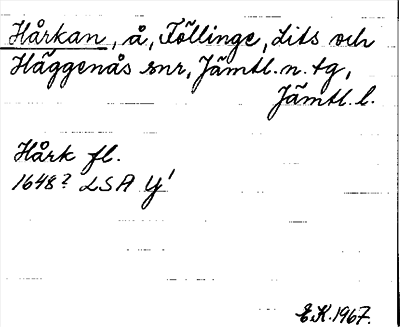 Hårkan, å, Föllinge, Lits och
Häggenås snr, Jämtl. n. tg,
Jämtl. l.
Hårk fl.
1648? LSA Y'
E.K. 1967.